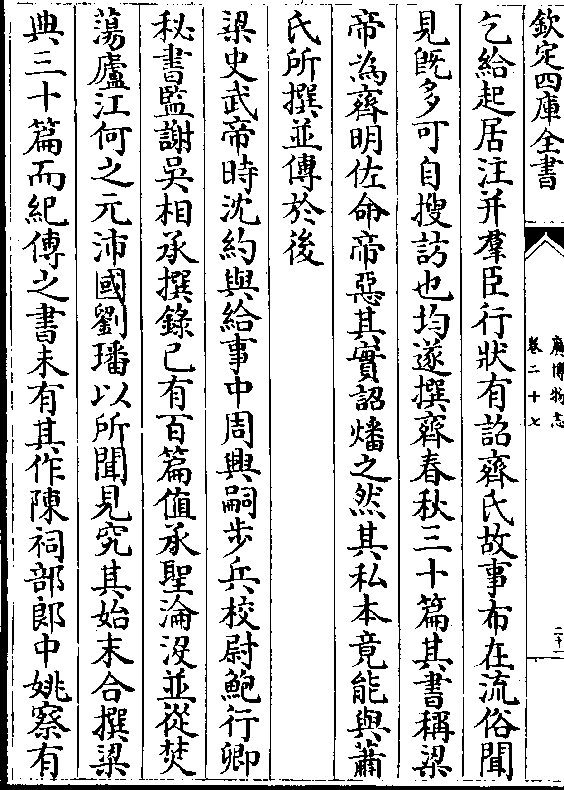 欽定四庫全書
廣博物志
卷二十七
二十一
乞給起居注并羣臣行狀有詔齊氏故事布在流俗聞
見旣多可自搜訪也均遂撰齊春秋三十篇其書稱梁
帝為齊明佐命帝惡其實詔燔之然其私本竟能與蕭
氏所撰並傳於後
梁史武帝時沈約與給事中周興嗣步兵校尉鮑行卿
秘書監謝吳相承撰錄已有百篇値承聖淪沒並從焚
蕩廬江何之元沛國劉璠以所聞見究其始末合撰梁
典三十篇而紀傳之書未有其作陳祠部郎中姚察有